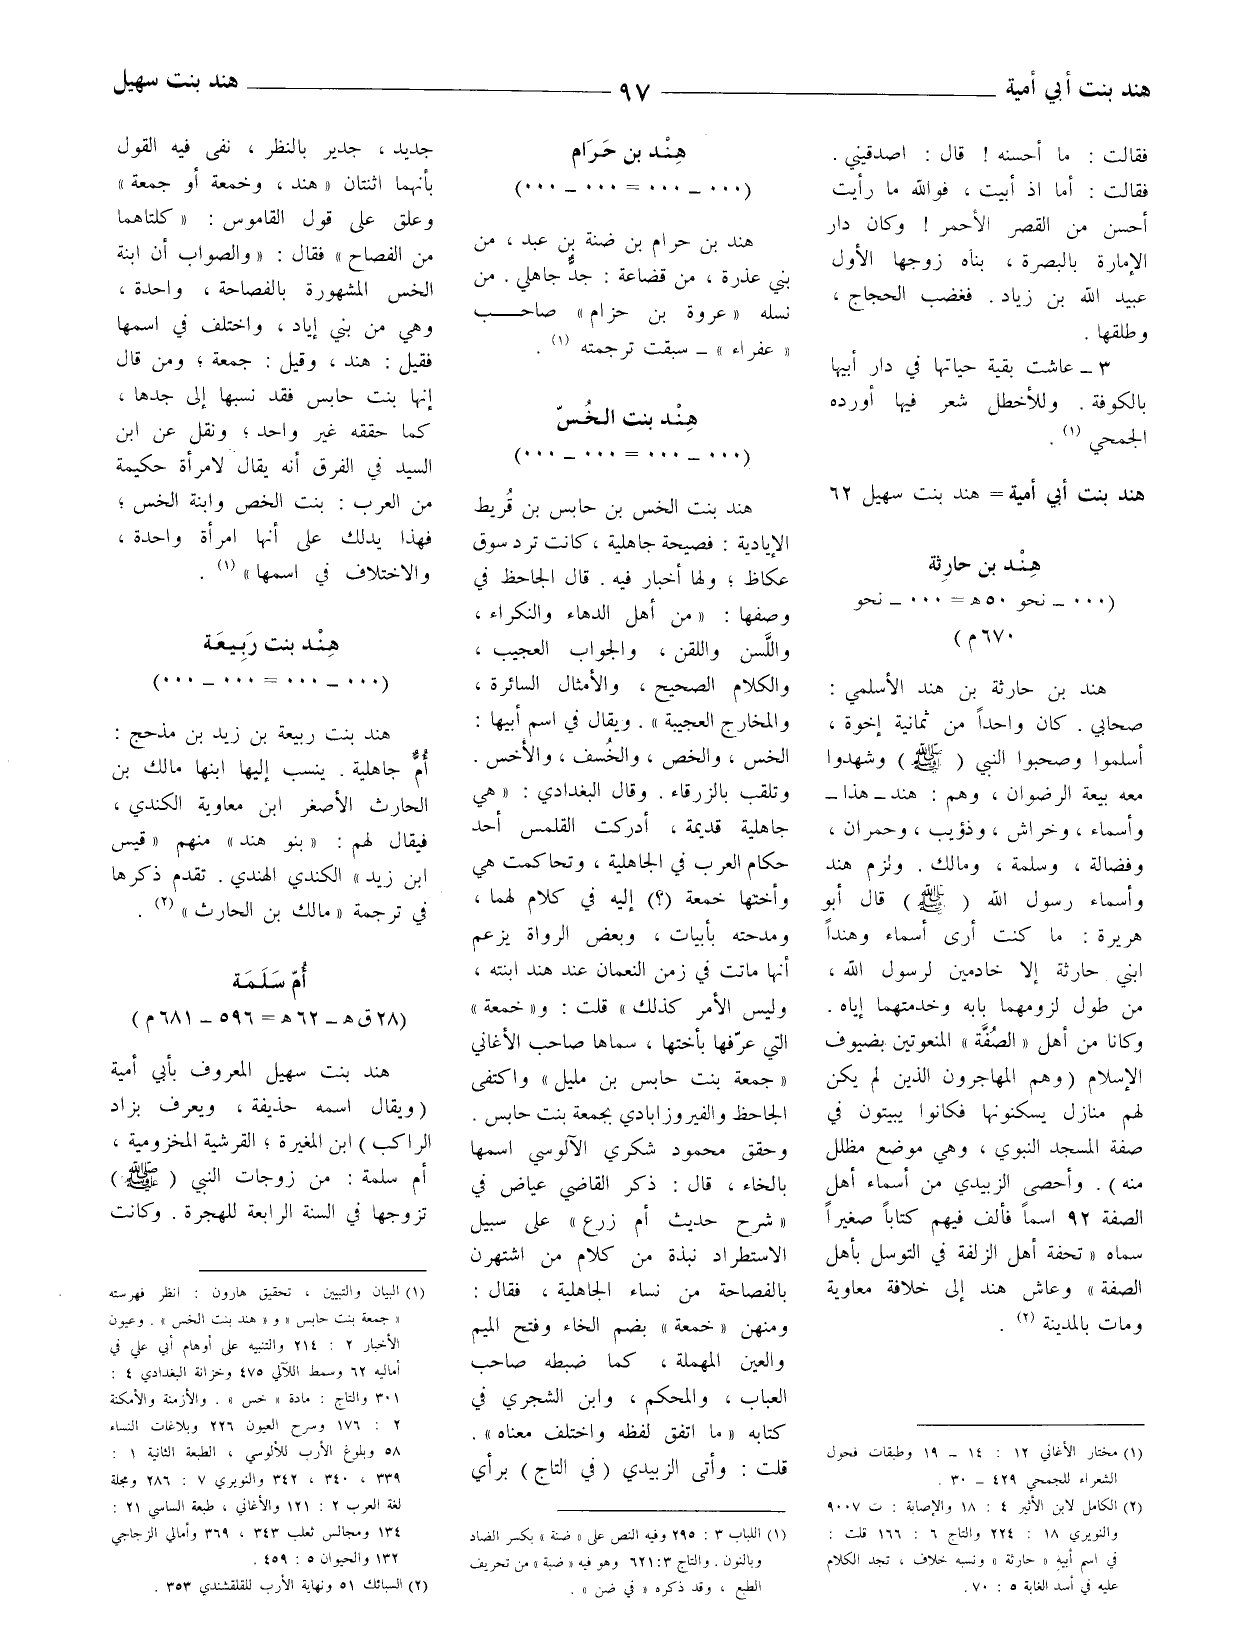 هند بنت أبي أمية ـــ ٩٧ ـــ هند بنت سهيل
فقالت : ما أحسنه ! قال : اصدقيني .
فقالت : أما اذ أبيت ، فوالله ما رأيت
أحسن من القصر الأحمر ! وكان دار
الإمارة بالبصرة ، بناه زوجها الأول
عبيد الله بن زياد . فغضب الحجاج ،
وطلقها .
٣ ـ عاشت بقية حياتها في دار أبيها
بالكوفة . وللأخطل شعر فيها أورده
الجمحي (١) .
هند بنت أبي أمية = هند بنت سهيل ٦٢
هِنْد بن حارِثة
(٠٠٠ ـ نحو ٥٠ هـ = ٠٠٠ ـ نحو
٦٧٠ م)
هند بن حارثة بن هند الأسلمي :
صحابي . كان واحداً من ثمانية إخوة ،
أسلموا وصحبوا النبي (ﷺ) وشهدوا
معه بيعة الرضوان ، وهم : هند ـ هذا ـ
وأسماء ، وخراش ، وذؤيب ، وحمران ،
وفضالة ، وسلمة ، ومالك . ولزم هند
وأسماء رسول الله (ﷺ) قال أبو
هريرة : ما كنت أرى أسماء وهنداً
ابني حارثة إلا خادمين لرسول الله ،
من طول لزومهما بابه وخدمتهما إياه .
وكانا من أهل « الصُفَّة » المنعوتين بضيوف
الإسلام (وهم المهاجرون الذين لم يكن
لهم منازل يسكنونها فكانوا يبيتون في
صفة المسجد النبوي ، وهي موضع مظلل
منه) . وأحصى الزبيدي من أسماء أهل
الصفة ٩٢ اسماً فألف فيهم كتاباً صغيراً
سماه « تحفة أهل الزلفة في التوسل بأهل
الصفة » وعاش هند إلى خلافة معاوية
ومات بالمدينة (٢) .
(١) مختار الأغاني ١٢ : ١٤ ـ ١٩ وطبقات فحول
الشعراء للجمحي ٤٢٩ ـ ٣٠ .
(٢) الكامل لابن الأثير ٤ : ١٨ والإصابة : ت ٩٠٠٧
والنويري ١٨ : ٢٢٤ والتاج ٦ : ١٦٦ قلت :
في اسم أبيه « حارثة » ونسبه خلاف ، تجد الكلام
عليه في أسد الغابة ٥ : ٧٠ .
هِنْد بن حَرَام
(٠٠٠ ـ ٠٠٠ = ٠٠٠ ـ ٠٠٠)
هند بن حرام بن ضنة بن عبد ، من
بني عذرة ، من قضاعة : جدٌّ جاهلي . من
نسله « عروة بن حزام » صاحب
« عفراء » ـ سبقت ترجمته (١) .
هِنْد بنت الخُسّ
(٠٠٠ ـ ٠٠٠ = ٠٠٠ ـ ٠٠٠)
هند بنت الخس بن حابس بن قُريط
الإيادية : فصيحة جاهلية ، كانت ترد سوق
عكاظ ؛ ولها أخبار فيه . قال الجاحظ في
وصفها : « من أهل الدهاء والنكراء ،
واللَّسن واللقن ، والجواب العجيب ،
والكلام الصحيح ، والأمثال السائرة ،
والمخارج العجيبة » . ويقال في اسم أبيها :
الخس ، والخص ، والخُسف ، والأخس .
وتلقب بالزرقاء . وقال البغدادي : « هي
جاهلية قديمة ، أدركت القلمس أحد
حكام العرب في الجاهلية ، وتحاكمت هي
وأختها خمعة (؟) إليه في كلام لهما ،
ومدحته بأبيات ، وبعض الرواة يزعم
أنها ماتت في زمن النعمان عند هند ابنته ،
وليس الأمر كذلك » قلت : و« خمعة »
التي عرّفها بأختها ، سماها صاحب الأغاني
« جمعة بنت حابس بن مليل » واكتفى
الجاحظ والفيروزابادي بجمعة بنت حابس .
وحقق محمود شكري الآلوسي اسمها
بالخاء ، قال : ذكر القاضي عياض في
« شرح حديث أم زرع » على سبيل
الاستطراد نبذة من كلام من اشتهرن
بالفصاحة من نساء الجاهلية ، فقال :
ومنهن « خمعة » بضم الخاء وفتح الميم
والعين المهملة ، كما ضبطه صاحب
العباب ، والمحكم ، وابن الشجري في
كتابه « ما اتفق لفظه واختلف معناه » .
قلت : وأتى الزبيدي (في التاج) برأي
(١) اللباب ٣ : ٢٩٥ وفيه النص على « ضنة » بكسر الضاد
وبالنون . والتاج ٣ : ٦٢١ وهو فيه « ضبة » من تحريف
الطبع ، وقد ذكره « في ضن » .
جديد ، جدير بالنظر ، نفى فيه القول
بأنهما اثنتان « هند ، وخمعة أو جمعة »
وعلق على قول القاموس : « كلتاهما
من الفصاح » فقال : « والصواب أن ابنة
الخس المشهورة بالفصاحة ، واحدة ،
وهي من بني إياد ، واختلف في اسمها
فقيل : هند ، وقيل : جمعة ؛ ومن قال
إنها بنت حابس فقد نسبها إلى جدها ،
كما حققه غير واحد ؛ ونقل عن ابن
السيد في الفرق أنه يقال لامرأة حكيمة
من العرب : بنت الخص وابنة الخس ؛
فهذا يدلك على أنها امرأة واحدة ،
والاختلاف في اسمها » (١) .
هِنْد بنت رَبِيعَة
(٠٠٠ ـ ٠٠٠ = ٠٠٠ ـ ٠٠٠)
هند بنت ربيعة بن زيد بن مذحج :
أُمٌّ جاهلية . ينسب إليها ابنها مالك بن
الحارث الأصغر ابن معاوية الكندي ،
فيقال لهم : « بنو هند » منهم « قيس
ابن زيد » الكندي الهندي . تقدم ذكرها
في ترجمة « مالك بن الحارث » (٢) .
أُمّ سَلَمَة
(٢٨ ق هـ ـ ٦٢ هـ = ٥٩٦ ـ ٦٨١ م)
هند بنت سهيل المعروف بأبي أمية
(ويقال اسمه حذيفة ، ويعرف بزاد
الراكب) ابن المغيرة ؛ القرشية المخزومية ،
أم سلمة : من زوجات النبي (ﷺ)
تزوجها في السنة الرابعة للهجرة . وكانت
(١) البيان والتبيين ، تحقيق هارون : انظر فهرسته
« جمعة بنت حابس » و « هند بنت الخس » . وعيون
الأخبار ٢ : ٢١٤ والتنبيه على أوهام أبي علي في
أماليه ٦٢ وسمط اللآلي ٤٧٥ وخزانة البغدادي ٤ :
٣٠١ والتاج : مادة « خس » . والأزمنة والأمكنة
٢ : ١٧٦ وسرح العيون ٢٢٦ وبلاغات النساء
٥٨ وبلوغ الأرب للآلوسي ، الطبعة الثانية ١ :
٣٣٩ ، ٣٤٠ ، ٣٤٢ والنويري ٧ : ٢٨٦ ومجلة
لغة العرب ٢ : ١٢١ والأغاني ، طبعة الساسي ٢١ :
١٣٤ ومجالس ثعلب ٣٤٣ ، ٣٦٩ وأمالي الزجاجي
١٣٢ والحيوان ٥ : ٤٥٩ .
(٢) السبائك ٥١ ونهاية الأرب للقلقشندي ٣٥٣ .